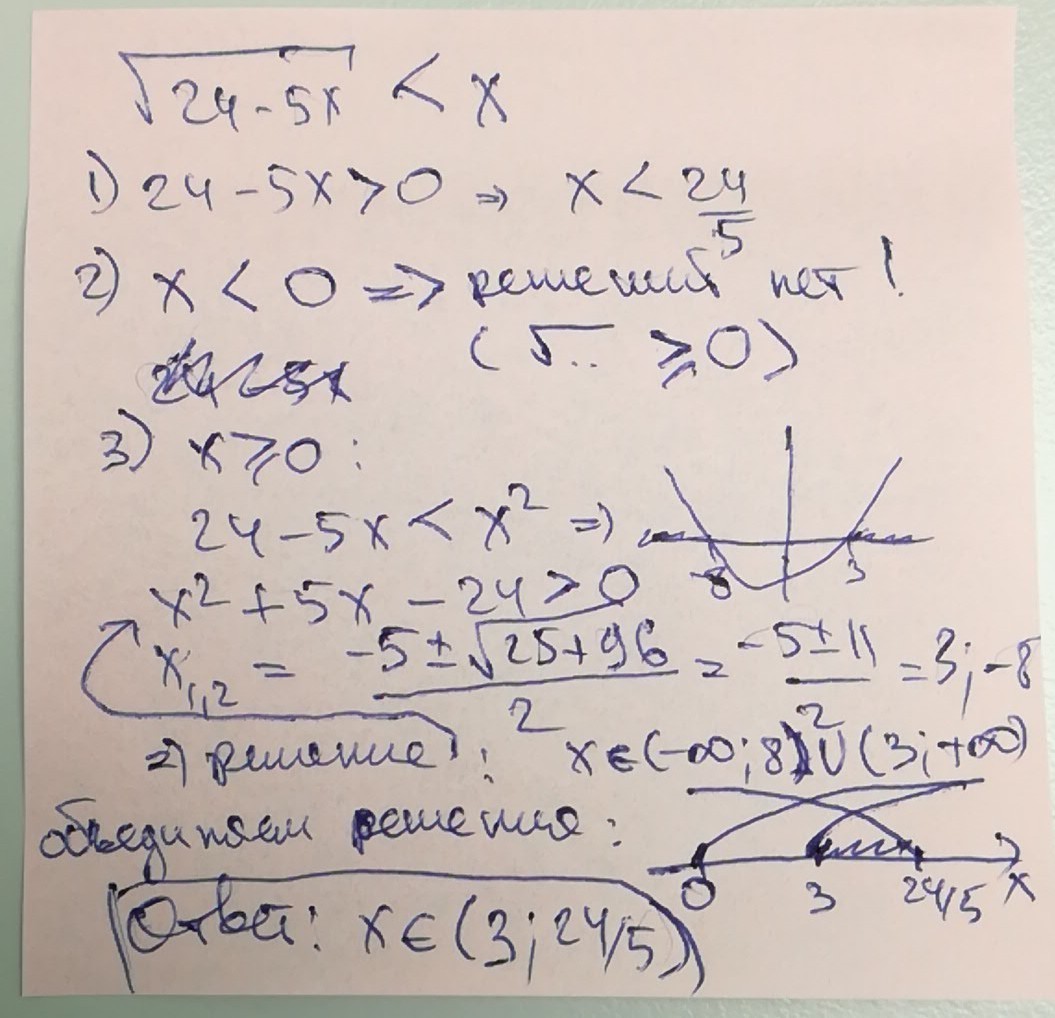 √24-5x < x
1) 24-5x>0 => x < 24/5
2) x < 0 => решений нет!
(√.. ⩾0)
3) x⩾0:
24-5x < x² =>
-8 3
x²+5x-24>0
x₁,₂ = -5±√25+96/2 = -5±11/2 = 3; -8
=> решение: x∈(-∞;8)∪(3;+∞)
объединяем решения:
0 3 24/5 x
Ответ: x∈(3;24/5)